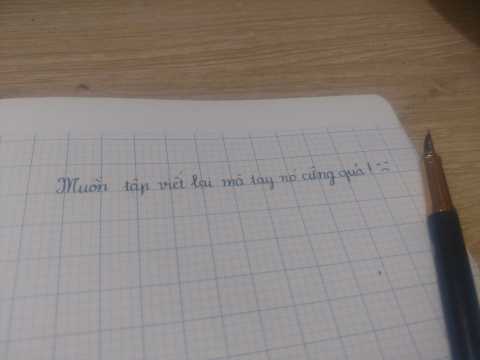 Muốn tập viết lại mà tay nó cứng quá! :(